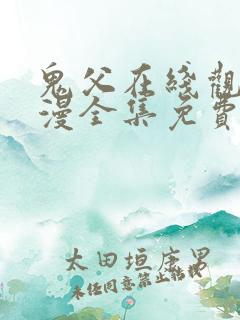 鬼父在綫觀
漫全集免費
太田垣康男
未经同意禁止转载